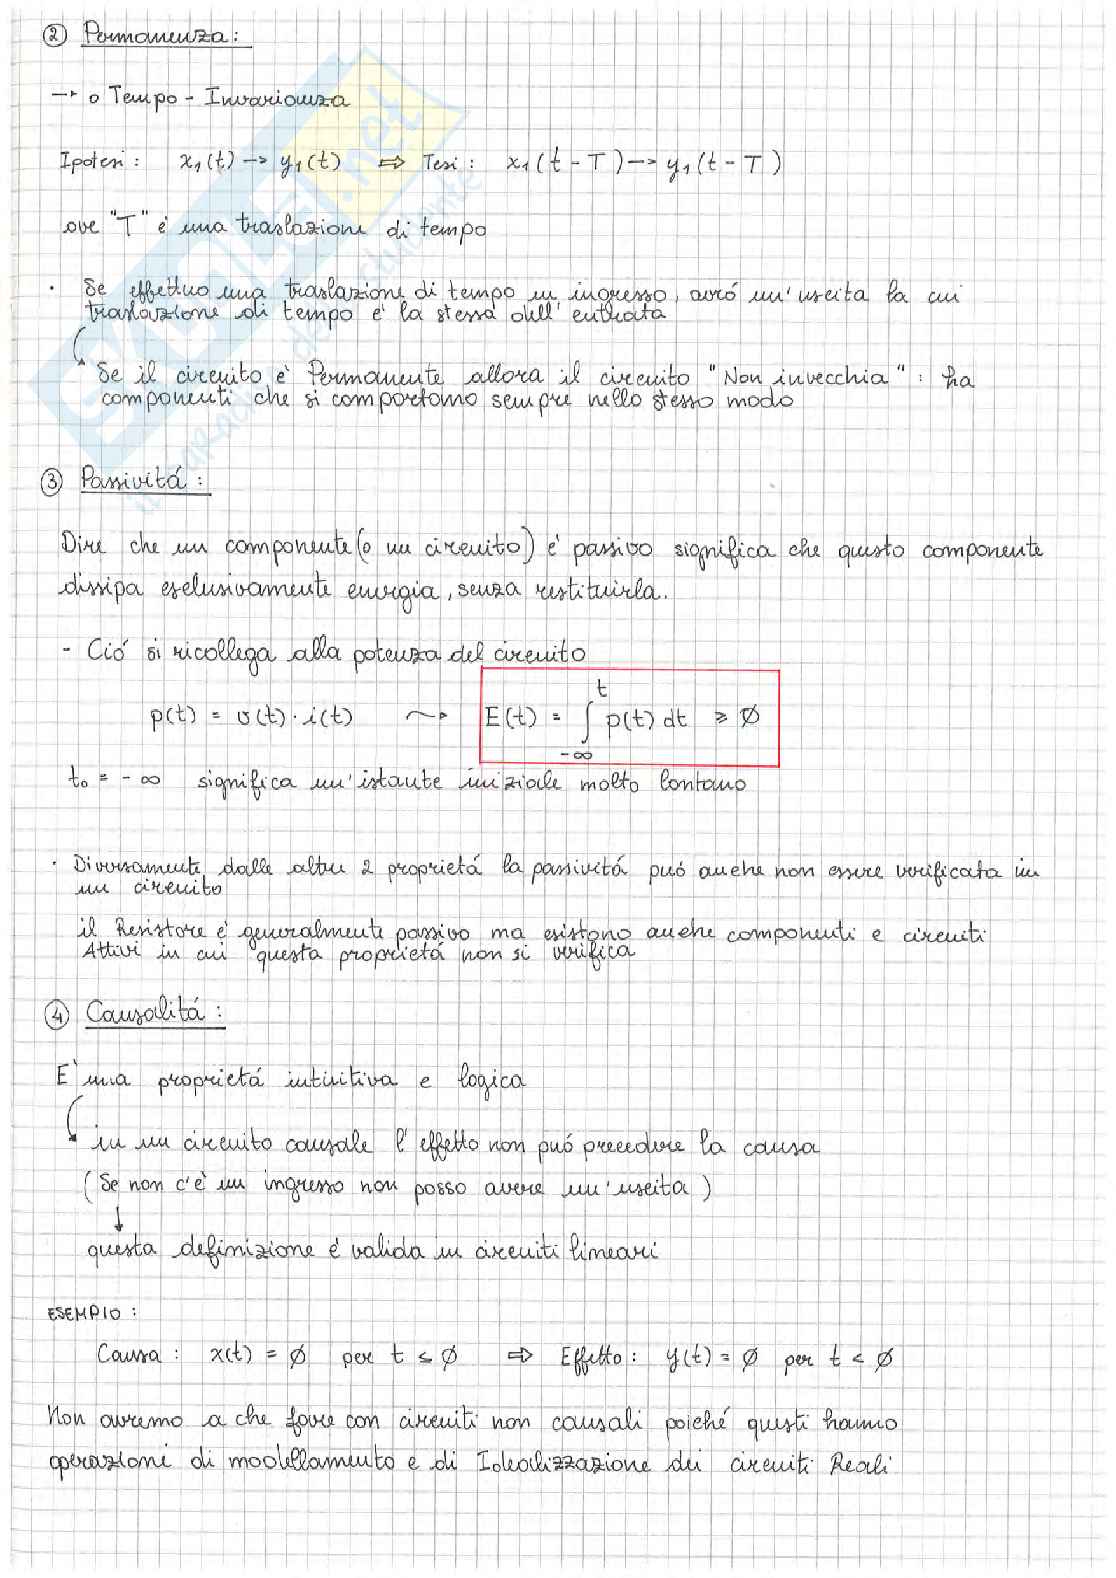 ② Permanenza :
→ o Tempo - Invarianza
Ipotesi : x₁(t) → y₁(t) ⇒ Tesi : x₁(t - T) → y₁(t - T)
ove "T" é una traslazione di tempo
· Se effettuo una traslazione di tempo in ingresso, avró un'uscita la cui
traslazione di tempo é la stessa dell'entrata
Se il circuito é Permanente allora il circuito "Non invecchia" : ha
componenti che si comportano sempre nello stesso modo
③ Passivitá :
Dire che un componente (o un circuito) é passivo significa che questo componente
dissipa esclusivamente energia, senza restituirla.
- Ció si ricollega alla potenza del circuito
p(t) = v(t) · i(t) ⤳ E(t) = ∫ₜ₌₋∞ᵗ p(t) dt ≥ Ø
t₀ = - ∞ significa un'istante iniziale molto lontano
· Diversamente dalle altre 2 proprietá la passivitá puó anche non essere verificata in
un circuito
il Resistore é generalmente passivo ma esistono anche componenti e circuiti
Attivi in cui questa proprietá non si verifica
④ Causalitá :
E' una proprietá intuitiva e logica
in un circuito causale l'effetto non puó precedere la causa
(Se non c'é un ingresso non posso avere un'uscita)
↓
questa definizione é valida in circuiti lineari
ESEMPIO :
Causa : x(t) = Ø per t ≤ Ø ⇒ Effetto : y(t) = Ø per t < Ø
Non avremo a che fare con circuiti non causali poiché questi hanno
operazioni di modellamento e di Idealizzazione dei circuiti Reali